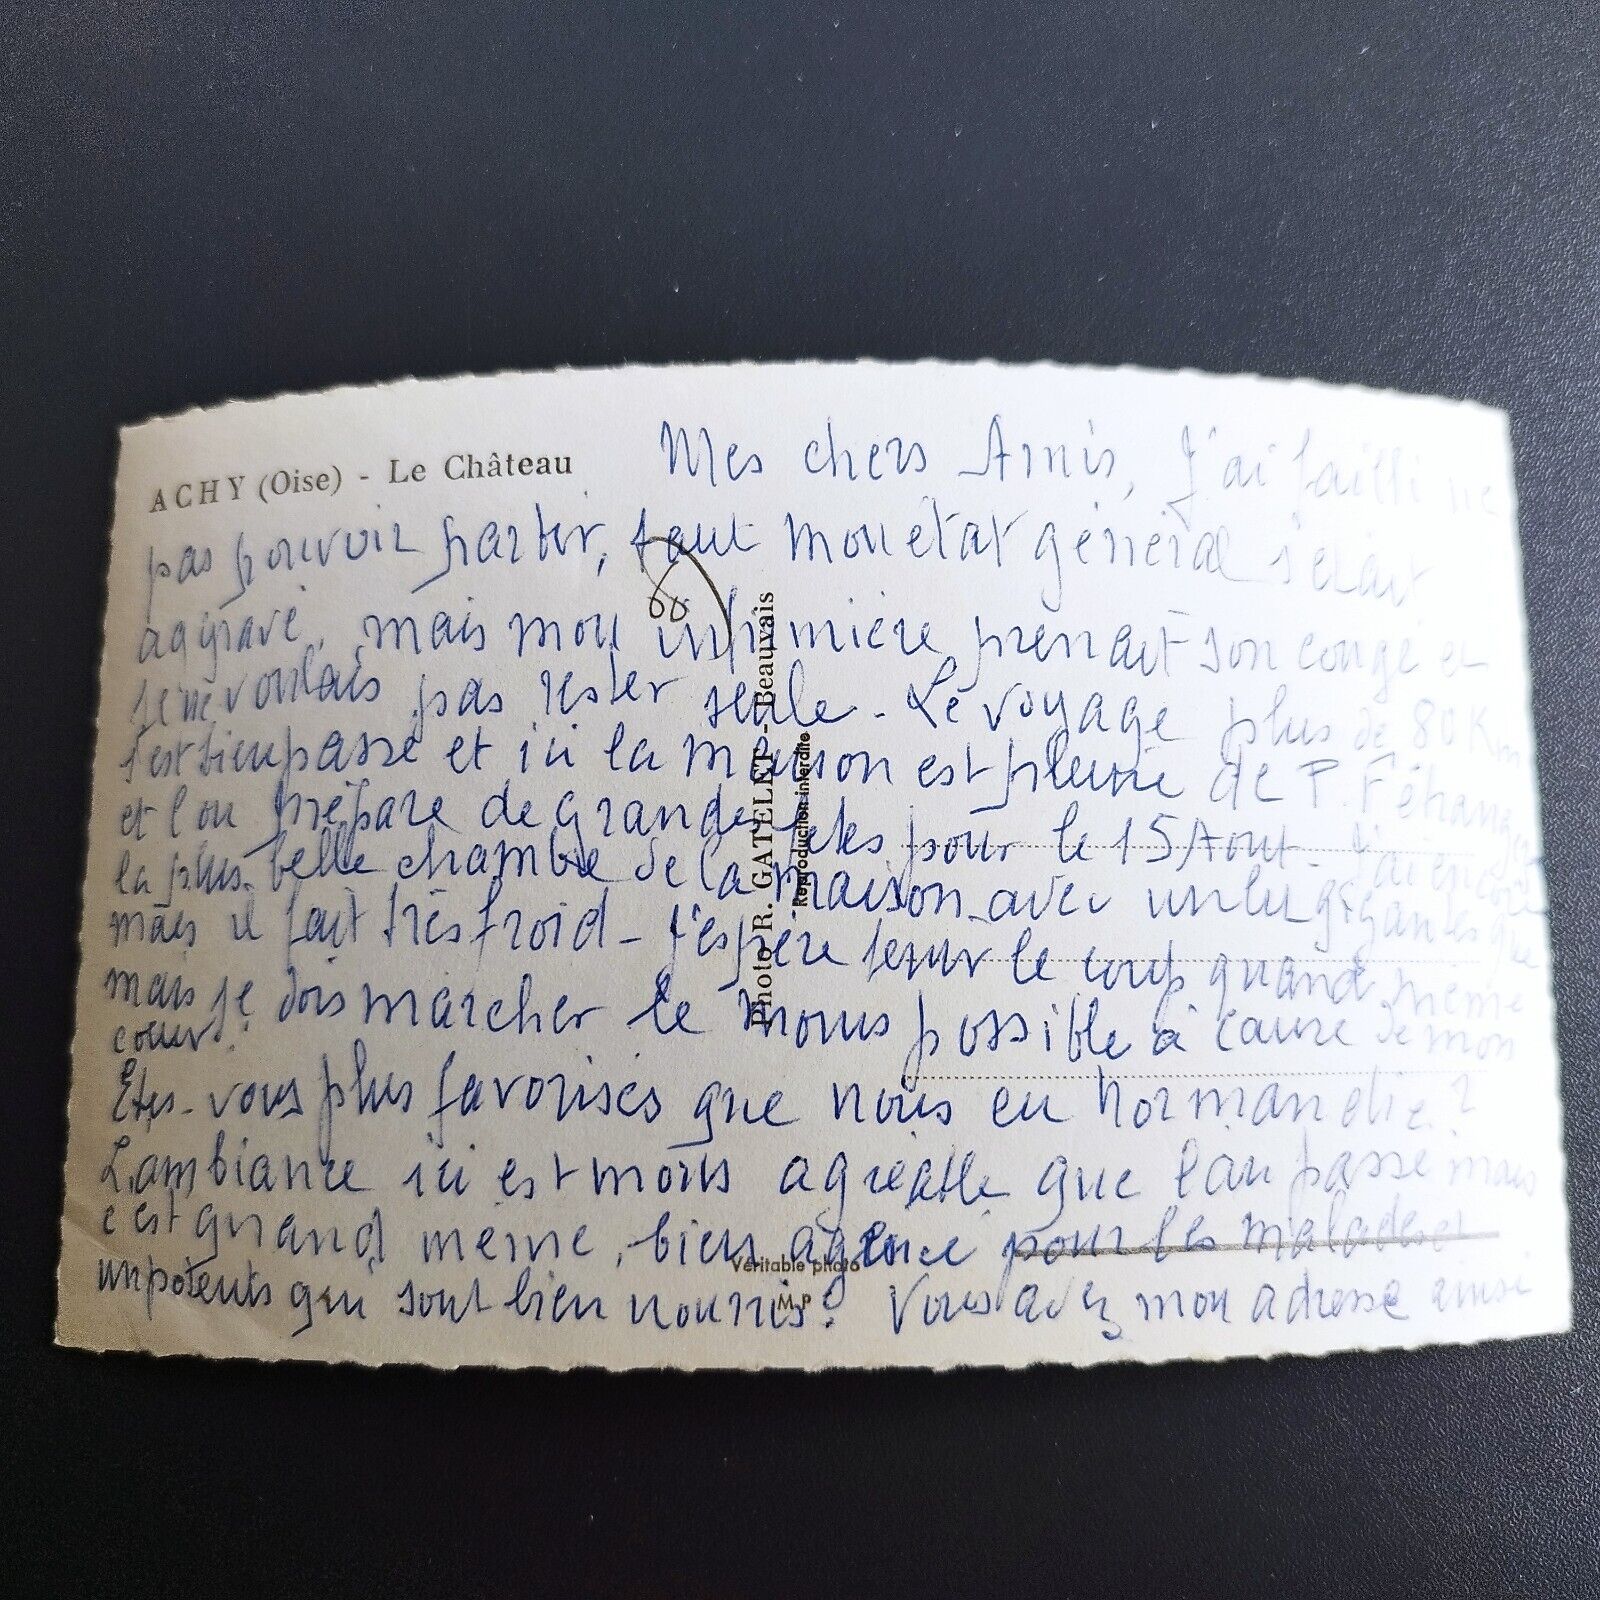 ACHY (Oise) - Le Château
Mes chers Amis, J'ai failli ne
pas pouvoir partir, tant mon état général s'était
aggravé, mais mon infirmière prenait son congé et
je ne voulais pas rester seule - Le voyage plus de 80 Km
s'est bien passé et ici la maison est pleine de P. F étrangères
et l'on prépare de grandes fêtes pour le 15 Aout - J'ai encore
la plus belle chambre de la maison avec un lit gigantesque
mais il fait très froid - J'espère tenir le coup quand même
mais je dois marcher le moins possible à cause de mon
coeur.
Etes-vous plus favorisés que nous en Normandie ?
L'ambiance ici est moins agréable que l'an passé mais
c'est quand même, bien agencé pour les malades et
impotents qui sont bien nourris ! Vous avez mon adresse ainsi
Photo R. GATELET - Beauvais
Reproduction interdite
Véritable photo
M P